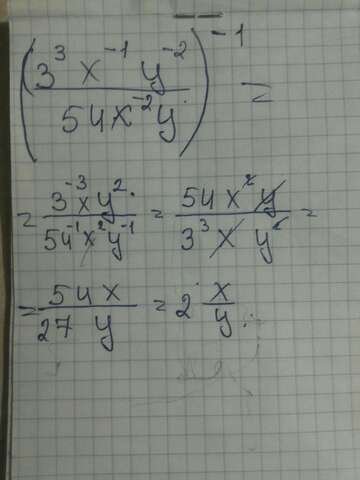 (3³ x⁻¹ y⁻² / 54x⁻²y)⁻¹ =
= 3⁻³xy² / 54⁻¹x²y⁻¹ = 54x²y / 3³x y² =
= 54x / 27 y = 2 x/y.